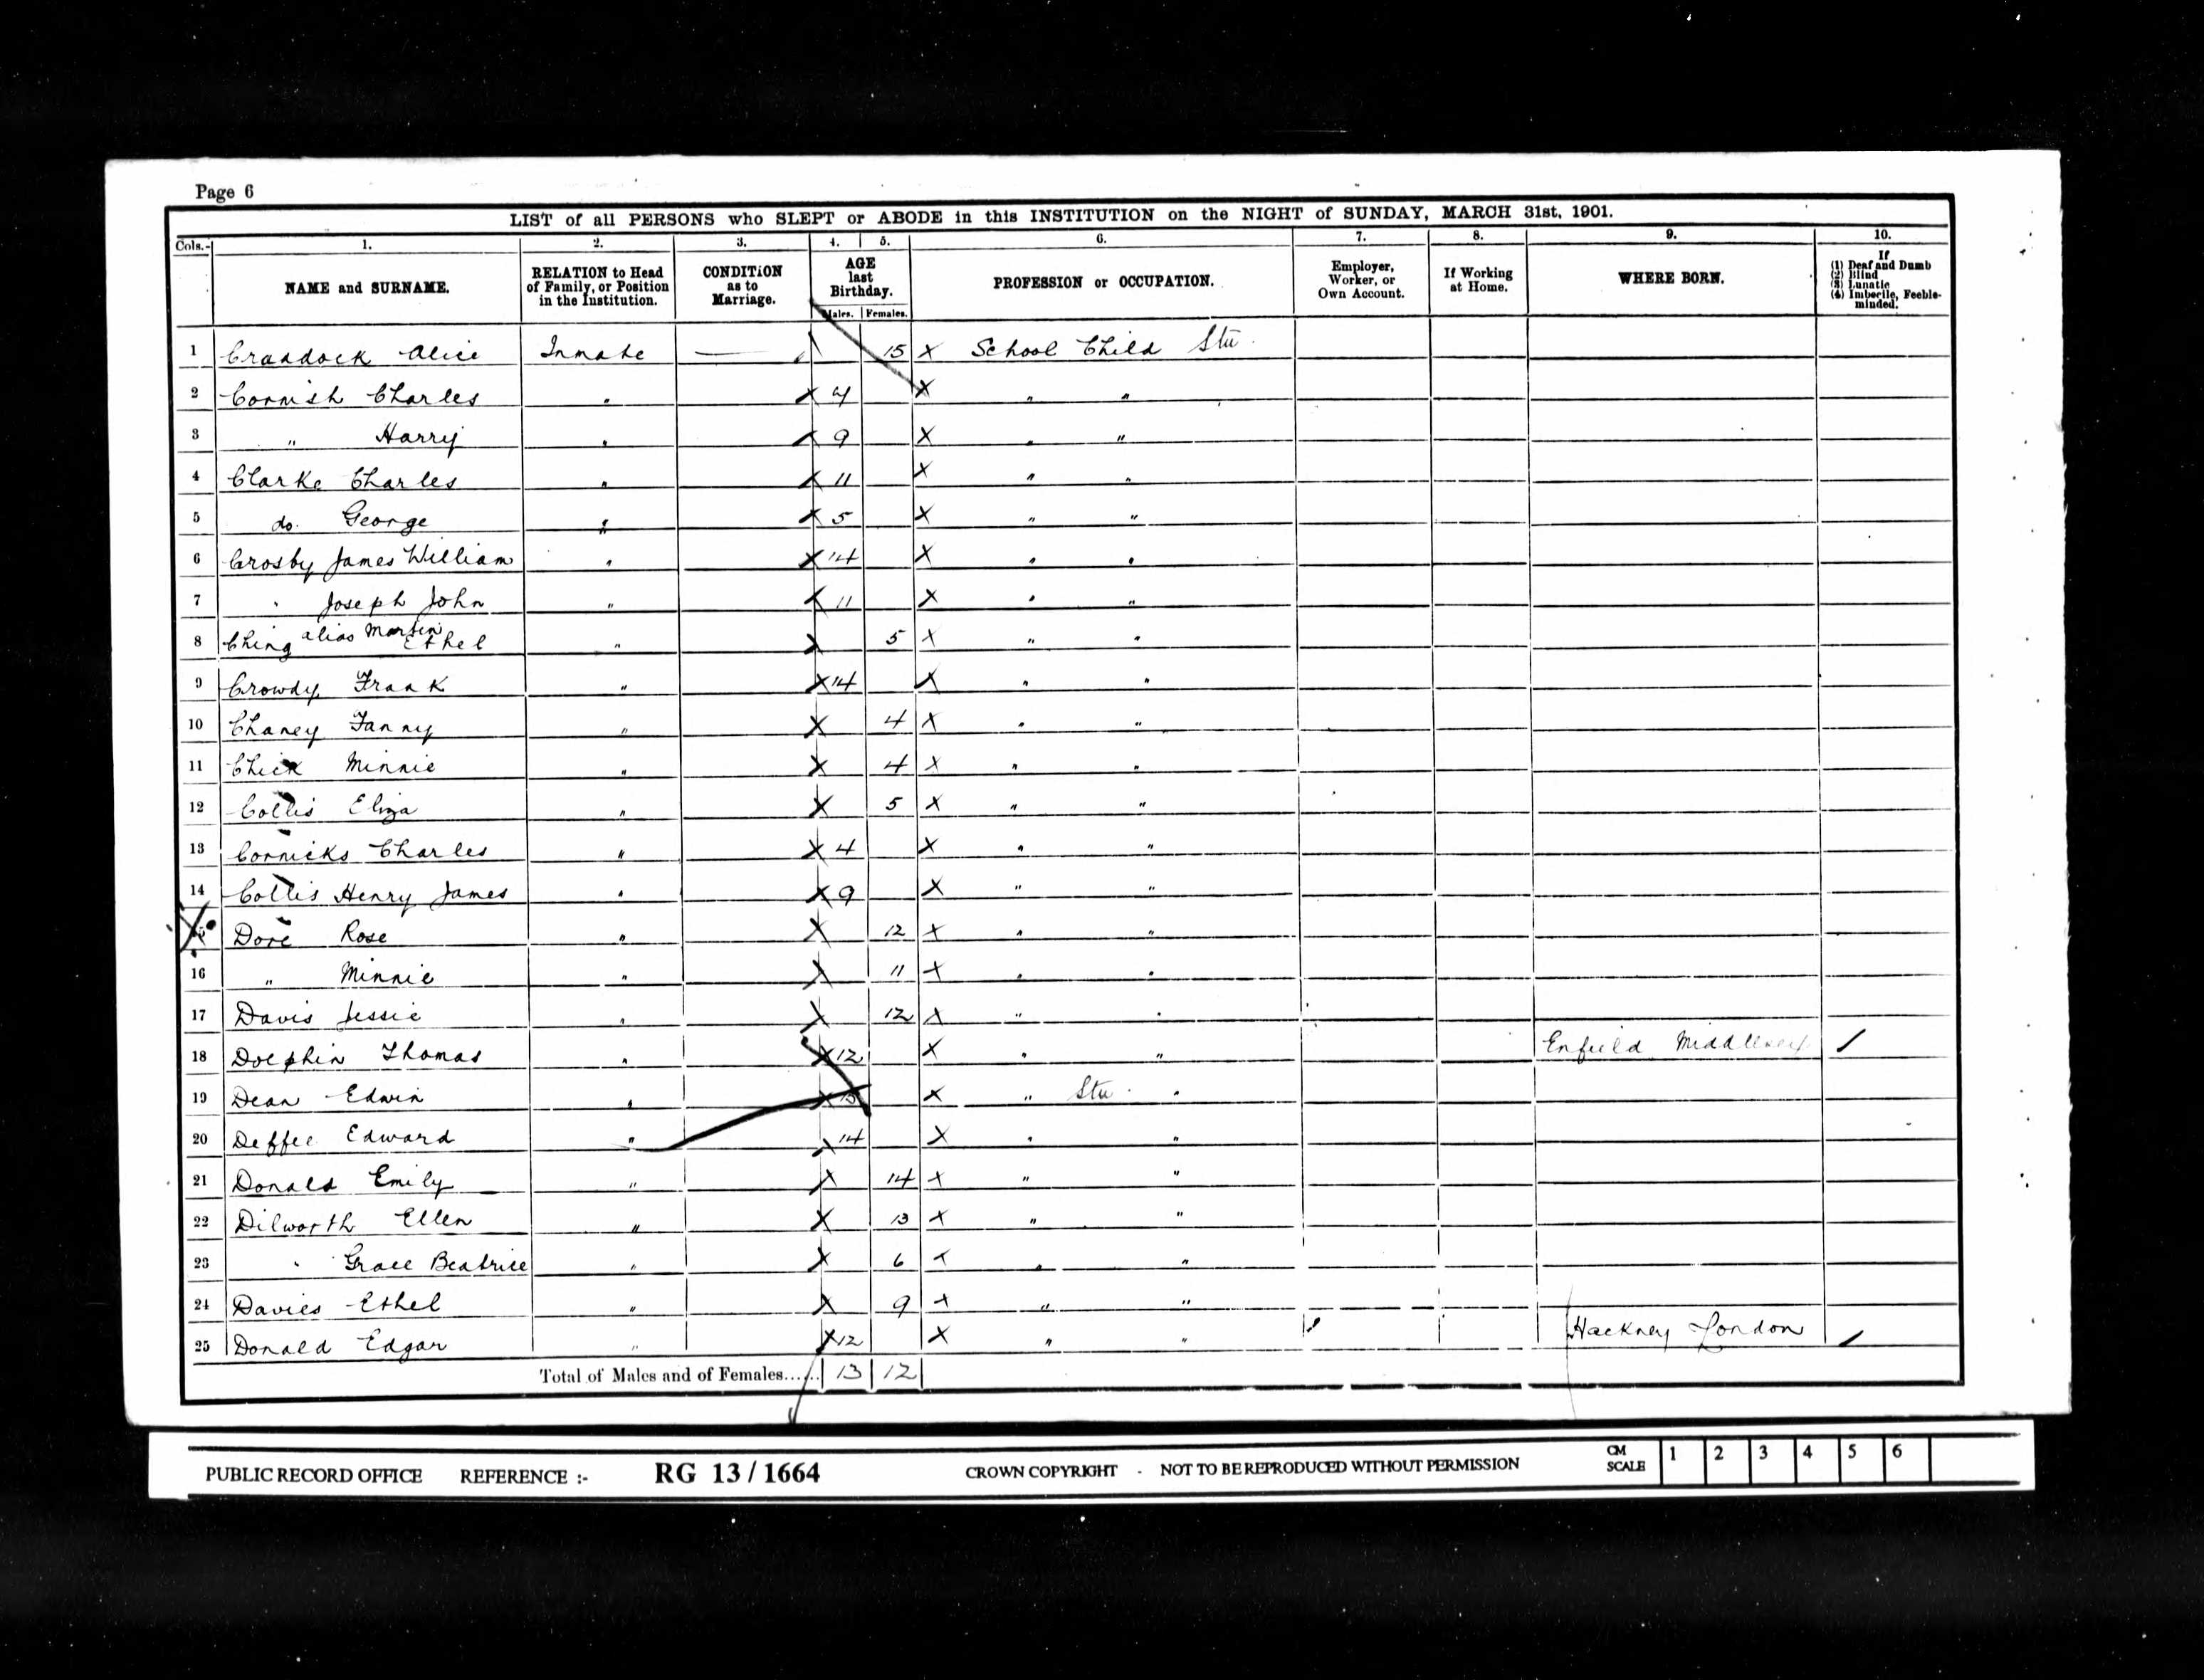 Page 6
LIST of all PERSONS who SLEPT or ABODE in this INSTITUTION on the NIGHT of SUNDAY, MARCH 31st, 1901.
Cols.- 1. 2. 3. 4. 5. 6. 7. 8. 9. 10.
NAME and SURNAME. RELATION to Head of Family, or Position in the Institution. CONDITION as to Marriage. AGE last Birthday. Males. Females. PROFESSION or OCCUPATION. Employer, Worker, or Own Account. If Working at Home. WHERE BORN. If (1) Deaf and Dumb (2) Blind (3) Lunatic (4) Imbecile, Feeble-minded.
1 Craddock Alice Inmate — 15 X School Child Stu
2 Cornish Charles " X X " "
3 " Harry " X 9 X " "
4 Clarke Charles " X 11 X " "
5 do. George " X 5 X " "
6 Crosby James William " X 14 X " "
7 " Joseph John " X 11 X " "
8 Ching alias Martin Ethel " X 5 X " "
9 Crowdy Frank " X 14 X " "
10 Chaney Fanny " X 4 X " "
11 Chick Minnie " X 4 X " "
12 Collis Eliza " X 5 X " "
13 Cornicks Charles " X 4 X " "
14 Collis Henry James " X 9 X " "
15 Dore Rose " X 12 X " "
16 " Minnie " X 11 X " "
17 Davis Jessie " X 12 X " "
18 Dolphin Thomas " X 12 X " " Enfield Middlesex
19 Dean Edwin " X X " Stu "
20 Deffee Edward " X 14 X " "
21 Donald Emily " X 14 X " "
22 Dilworth Ellen " X 13 X " "
23 " Grace Beatrice " X 6 X " "
24 Davies Ethel " X 9 X " "
25 Donald Edgar " X 12 X " " Hackney London
Total of Males and of Females...... 13 12
PUBLIC RECORD OFFICE REFERENCE :- RG 13 / 1664 CROWN COPYRIGHT - NOT TO BE REPRODUCED WITHOUT PERMISSION CM SCALE 1 2 3 4 5 6